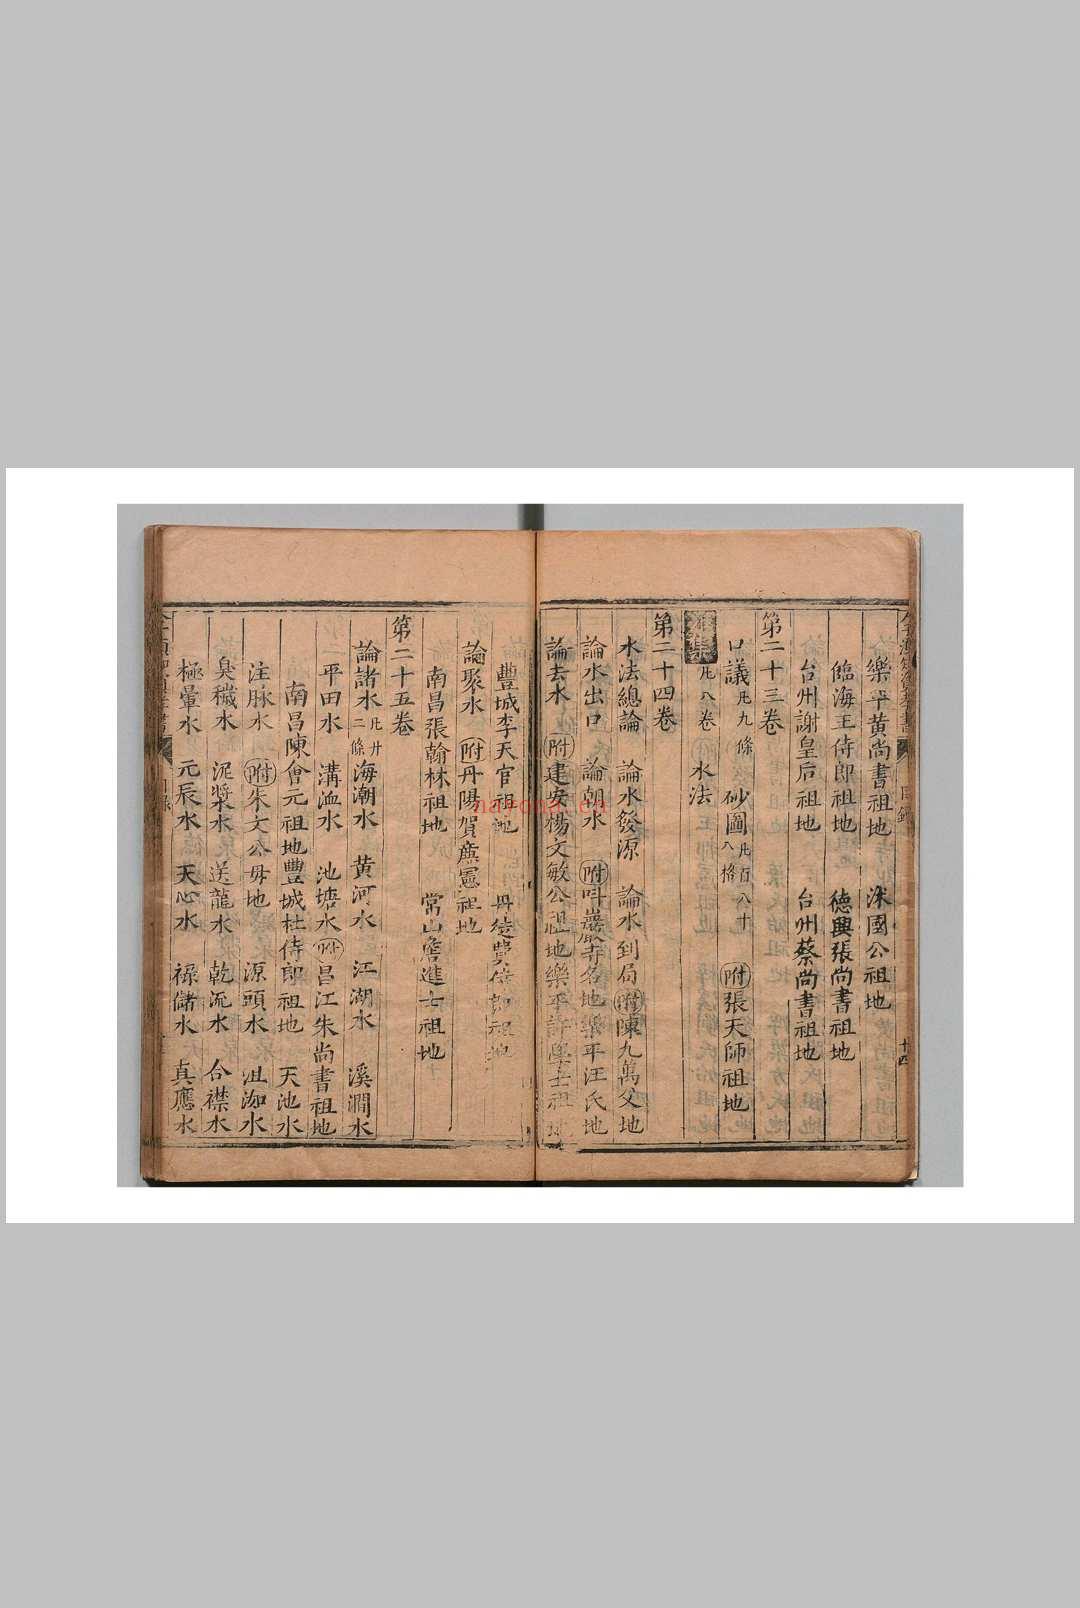 樂平黃尚書祖地 沭國公祖地
臨海王侍郎祖地 德興張尚書祖地
台州謝皇后祖地 台州蔡尚書祖地
第二十三卷
口議 凡九條 砂圖 凡百八十八格 附張天師祖地
集 凡八卷 水法
第二十四卷
水法總論 論水發源 論水到局 附陳九萬父地
論水出口 論朝水 附呌巖寺名地 樂平汪氏地
論去水 附建安楊文敏公祖地 樂平許學士祖地
豐城李天官祖地 丹徒費侍郎祖地
論聚水 附丹陽賀廉憲祖地
南昌張翰林祖地 常山詹進士祖地
第二十五卷
論諸水 凡廿二條 海潮水 黄河水 江湖水 溪澗水
平田水 溝洫水 池塘水 附昌江朱尚書祖地
南昌陳會元祖地 豐城杜侍郎祖地 天池水
注脉水 附朱文公母地 源頭水 沮洳水
臭穢水 泥漿水 送龍水 乾流水 合襟水
極暈水 元辰水 天心水 祿儲水 真應水
目錄
十四
navona.cn